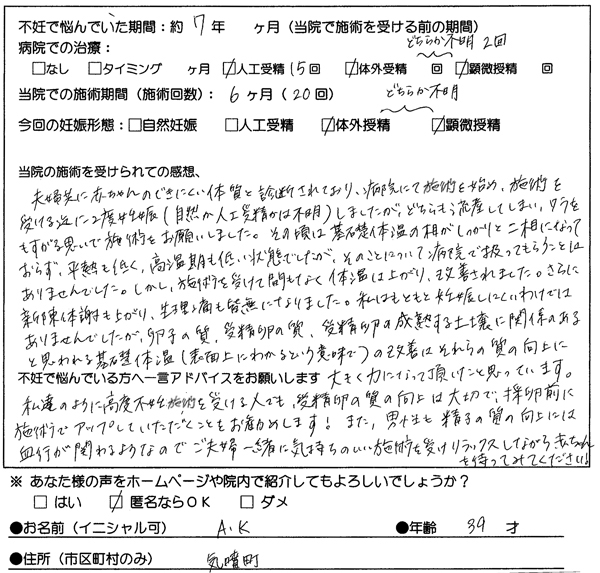 不妊で悩んでいた期間：約 7 年　　ヶ月（当院で施術を受ける前の期間）
病院での治療：　どちらか不明 2回
□なし　□タイミング　　ヶ月　☑人工受精 15 回　☑体外受精　　回　☑顕微授精　　回
当院での施術期間（施術回数）：　6 ヶ月（ 20 回）　どちらか不明
今回の妊娠形態：□自然妊娠　□人工受精　☑体外授精　☑顕微授精
当院の施術を受けられての感想、
夫婦共に赤ちゃんのできにくい体質と診断されており、病院にて施術を始め、施術を
受ける迄に2度妊娠（自然か人工受精かは不明）しましたが、どちらも流産してしまい、ワラを
もすがる思いで施術をお願いしました。その頃は基礎体温の相がしっかりと二相になって
おらず、平熱も低く、高温期も低い状態でしたが、そのことについて病院で扱ってもらうことは
ありませんでした。しかし、施術を受けて間もなく体温は上がり、改善されました。さらに
新陳代謝も上がり、生理痛も皆無になりました。私はもともと妊娠しにくいわけでは
ありませんでしたが、卵子の質、受精卵の質、受精卵の成熟する土壌に関係のある
と思われる基礎体温（表面上にわかるという意味で）の改善はそれらの質の向上に
不妊で悩んでいる方へ一言アドバイスをお願いします　大きく力になって頂けたと思っています。
私達のように高度不妊施術を受ける人でも、受精卵の質の向上は大切で、採卵前に
施術でアップしていただくこともお勧めします！また、男性も精子の質の向上には
血行が関わるようなのでご夫婦一緒に気持ちのいい施術を受けリラックスしながら赤ちゃん
を待ってみてください！
※ あなた様の声をホームページや院内で紹介してもよろしいでしょうか？
□ はい　☑ 匿名ならＯＫ　□ ダメ
●お名前（イニシャル可）　A.K　●年齢　39 才
●住所（市区町村のみ）　気噴町